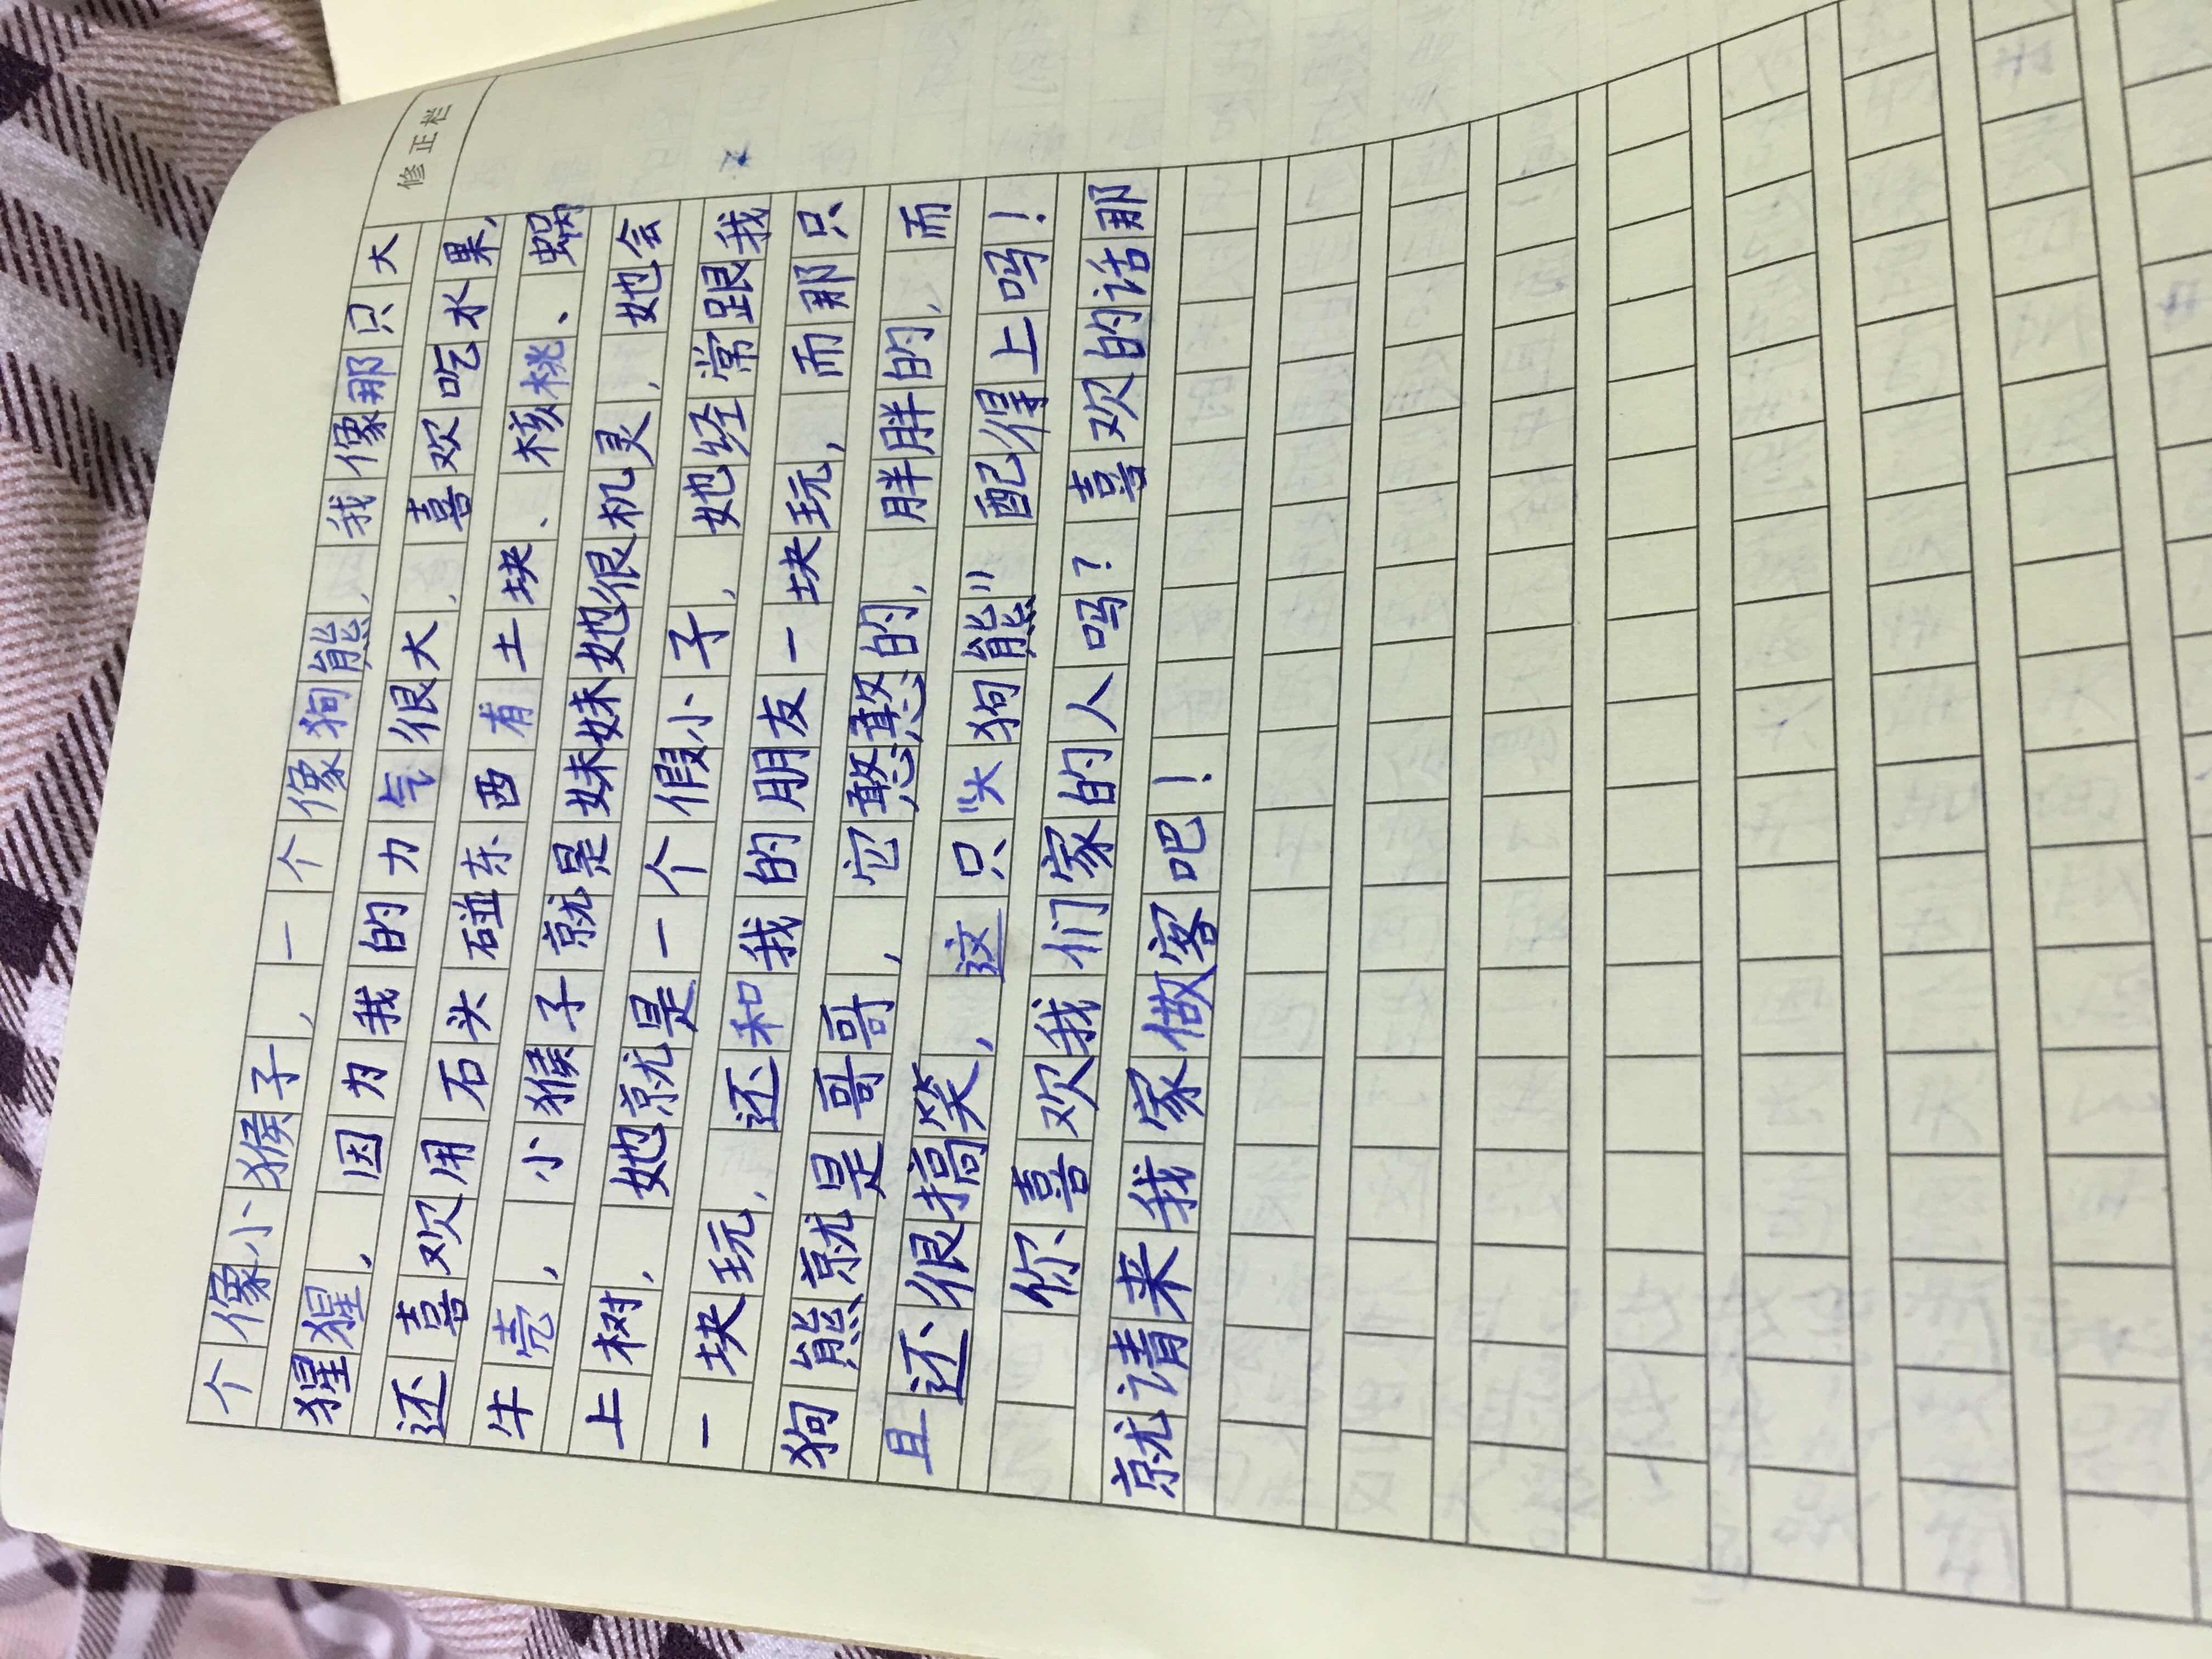 修正栏
个像小猴子,一个像狗熊,我像那只大
猩猩,因为我的力气很大,喜欢吃水果,
还喜欢用石头碰东西有土块、核桃、蜗
牛壳,小猴子就是妹妹她很机灵,她会
上树,她就是一个假小子,她经常跟我
一块玩,还和我的朋友一块玩,而那只
狗熊就是哥哥,它憨憨的,胖胖的,而
且还很搞笑,这只“头狗熊”配得上吗!
你喜欢我们家的人吗?喜欢的话那
就请来我家做客吧!